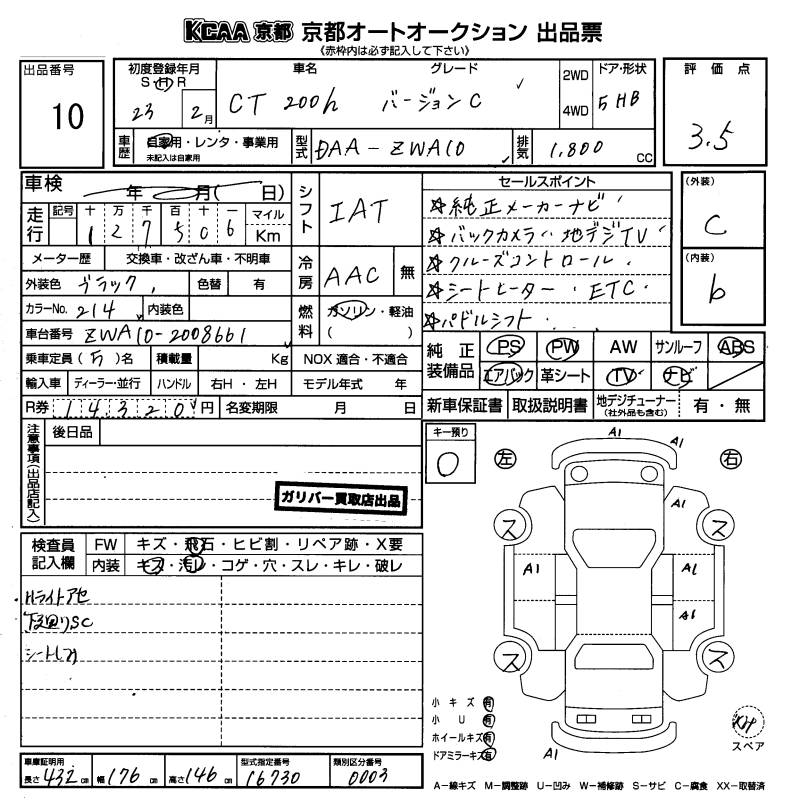 KCAA 京都 京都オートオークション 出品票
《赤枠内は必ず記入して下さい》
出品番号
10
初度登録年月
S・H・R
23 2月
車名 グレード
CT 200h バージョンC
2WD
4WD
ドア・形状
5 HB
評価点
3.5
車歴
自家用・レンタ・事業用
未記入は自家用
型式
DAA-ZWA10
排気
1,800 CC
車検 年 月( 日)
走行
記号 十 万 千 百 十 一
1 2 7 5 0 6
マイル
Km
メーター歴 交換車・改ざん車・不明車
外装色 ブラック 色替 有
カラーNo. 214 内装色
車台番号 ZWA10-2008661
乗車定員 (5)名 積載量 Kg
輸入車 ディーラー・並行 ハンドル 右H・左H
R券 14320円 名変期限 月 日
シフト
IAT
冷房
AAC 無
燃料
ガソリン・軽油
( )
NOX 適合・不適合
モデル年式 年
セールスポイント
☆純正メーカーナビ
☆バックカメラ・地デジTV
☆クルーズコントロール
☆シートヒーター・ETC
☆パドルシフト
(外装)
C
(内装)
b
純正装備品
PS PW AW サンルーフ ABS
エアバック 革シート TV ナビ
新車保証書 取扱説明書 地デジチューナー(社外品も含む) 有・無
注意事項(出品店記入)
後日品
ガリバー買取店出品
キー預り
0
検査員記入欄
FW キズ・飛石・ヒビ割・リペア跡・X要
内装 キズ・汚レ・コゲ・穴・スレ・キレ・破レ
Hライトアセ
下回りSC
シートしみ
左 右
A1
A1
A1
ス ス
A1 A1
A1
ス ス
A1
小キズ 有
小U 有
ホイールキズ 有
ドアミラーキズ 有
スペア
A-線キズ M-調整跡 U-凹み W-補修跡 S-サビ C-腐食 XX-取替済
車庫証明用
長さ 432cm 幅 176cm 高さ 146cm
型式指定番号
16730
類別区分番号
0003